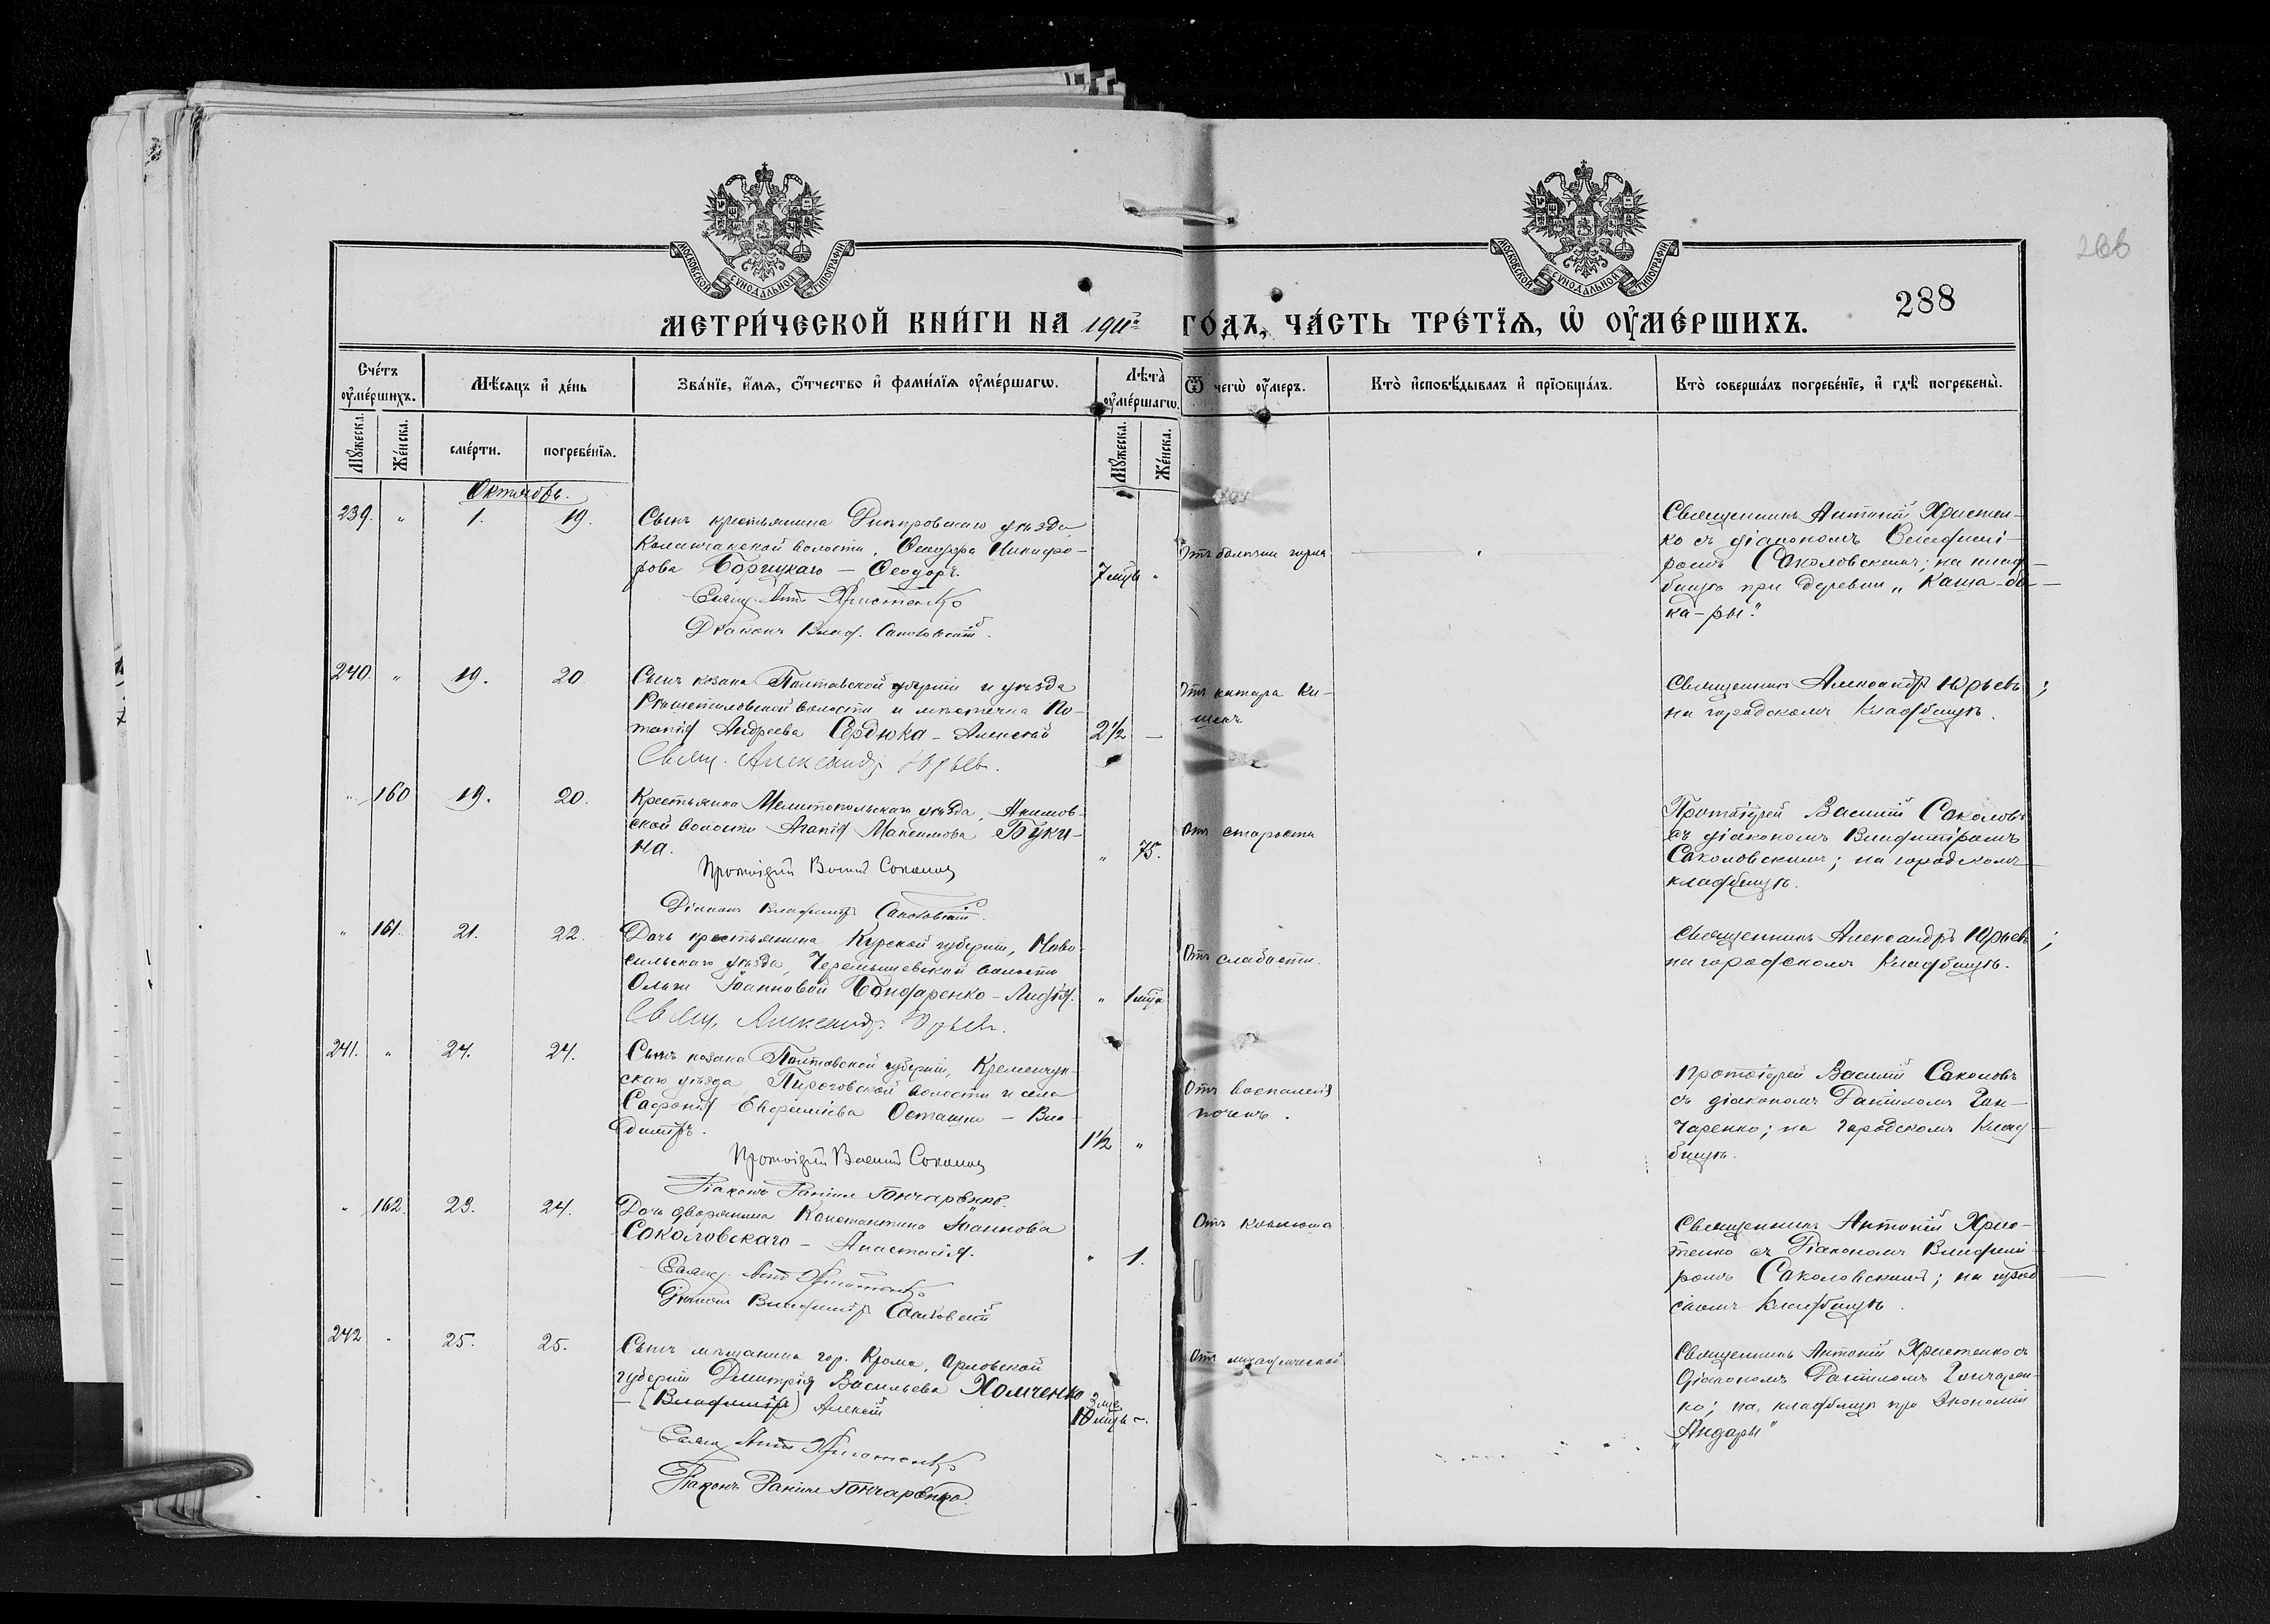 МОСКОВСКОЙ СѴНОДАЛЬНОЙ ТИПОГРАФІИ
МОСКОВСКОЙ СѴНОДАЛЬНОЙ ТИПОГРАФІИ
288
МЕТРИ́ЧЕСКОЙ КНИ́ГИ НА 1911 ГО́ДЪ, ЧА́СТЬ ТРЕ́ТІѦ, Ѡ҆ ОУ҆МЕ́РШИХЪ.
Сче́тъ оу҆ме́ршихъ.
Мѣ́сяцъ и҆ де́нь
Зва́ніе, и҆́мя, ѻ҆́тчество и҆ фами́лїя оу҆ме́ршагѡ.
Лѣта̀ оу҆ме́ршагѡ.
Ѿ чегѡ̀ оу҆́меръ.
Кто̀ и҆сповѣ́дывалъ и҆ прїѡбща́лъ.
Кто̀ соверша́лъ погребе́нїе, и҆ гдѣ̀ погребены̀.
Мꙋ́жеска.
Же́нска.
сме́рти.
погребе́нїя.
Мꙋ́жеска.
Же́нска.
Октябрь.
239. " 1. 19.
Сынъ крестьянина Днѣпровскаго уѣзда,
Каланчакской волости, Ѳеодора Никифо-
рова Борицкаго — Ѳеодоръ.
7 мцъ "
Свящ. Ант. Христенко
Діаконъ Влад. Соколовскій.
Священникъ Антоній Христен-
ко съ діакономъ Владимі-
ромъ Соколовскимъ; на клад-
бищѣ при деревни „Каша-ба-
ка-ры."
240. " 19. 20
Сынъ козака Полтавской губерніи и уѣзда
Рѣшетиловской волости и мѣстечка По-
тапія Андреева Сердюка — Алексѣй
2½ —
Свящ. Александръ Юрьевъ.
Отъ катара Ки-
шекъ
Священникъ Александръ Юрьевъ;
на городскомъ кладбищѣ.
" 160 19. 20.
Крестьянка Мелитопольскаго уѣзда, Акимов-
ской волости Агапія Максимова Буки-
на.
" 75.
Протоіерей Василій Соколовъ
Діаконъ Владиміръ Соколовскій.
Отъ старости
Протоіерей Василій Соколовъ
съ діакономъ Владиміромъ
Соколовскимъ; на городскомъ
кладбищѣ.
" 161. 21. 22.
Дочь крестьянина Курской губерніи, Ново-
сильскаго уѣзда, Черемышевской волости
Ольги Іоанновой Бондаренко — Лидія.
" 1 мцъ
Свящ. Александръ Юрьевъ.
Отъ слабости.
Священникъ Александръ Юрьевъ;
на городскомъ кладбищѣ.
241. " 24. 24.
Сынъ козака Полтавской губерніи, Кременчуг-
скаго уѣзда, Пироговской волости и села
Сафонія Евфиміева Осташка — Вла-
диміръ.
1½ "
Протоіерей Василій Соколовъ
Діаконъ Даніилъ Гончаренко.
Отъ воспаленія
почекъ.
Протоіерей Василій Соколовъ
съ діакономъ Даніиломъ Гон-
чаренко; на городскомъ клад-
бищѣ.
" 162. 23. 24.
Дочь дворянина Константина Іоаннова
Соколовскаго — Анастасія.
" 1.
Свящ. Ант. Христенко
Діаконъ Владиміръ Соколовскій
Отъ коклюша
Священникъ Антоній Хрис-
тенко съ Діакономъ Владими-
ромъ Соколовскимъ; на город-
скомъ кладбищѣ.
242 " 25. 25.
Сынъ мѣщанина гор. Крома, Орловской
губерніи Димитрія Васильева Хомченко
— (Владиміръ) Алексій
10 мцъ —
Свящ. Ант. Христенко
Діаконъ Даніилъ Гончаренко.
Священникъ Антоній Христенко съ
Діакономъ Даніиломъ Гончарен-
ко; на кладбищѣ при Экономіи
„Андары"